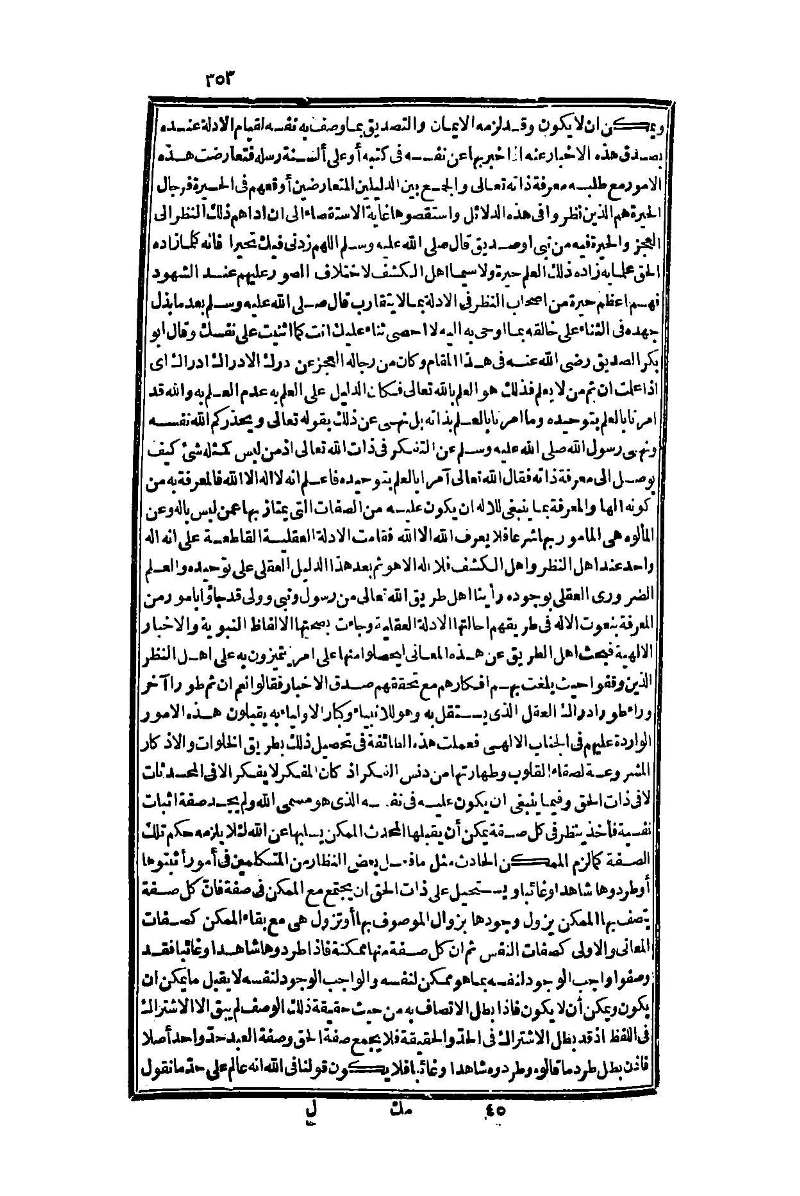 ٣٥٣
ويمكن ان لا يكون وقد لزمه الايمان والتصديق بما وصف به نفسه لقيام الادلة عنده
بصدق هذه الاخبار عنه اذا اخبر بها عن نفسه فى كتبه أو على ألسنة رسله فتعارضت هذه
الامور مع طلبه معرفة ذاته تعالى والجمع بين الدليلين المتعارضين أوقعهم فى الحيرة فرجال
الحيرة هم الذين نظروا فى هذه الدلائل واستقصوها غاية الاستقصاء الى ان اداهم ذلك النظر الى
العجز والحيرة فيه من نبى او صديق قال صلى الله عليه وسلم اللهم زدنى فيك تحيرا فانه كلما زاده
الحق علما به زاده ذلك العلم حيرة ولا سيما اهل الكشف لاختلاف الصور عليهم عند الشهود
فهم اعظم حيرة من اصحاب النظر فى الادلة بما لا يتقارب قال صلى الله عليه وسلم بعد ما بذل
جهده فى الثناء على خالقه بما اوحى به اليه لا احصى ثناء عليك انت كما اثنيت على نفسك وقال ابو
بكر الصديق رضى الله عنه فى هذا المقام وكان من رجاله العجز عن درك الادراك ادراك اى
اذا علمت ان ثم من لا يعلم فذلك هو العلم بالله تعالى فكان الدليل على العلم به عدم العلم به والله قد
امرنا بالعلم بتوحيده وما امرنا بالعلم بذاته بل نهى عن ذلك بقوله تعالى ويحذركم الله نفسه
ونهى رسول الله صلى الله عليه وسلم عن التفكر فى ذات الله تعالى اذ من ليس كمثله شئ كيف
يوصل الى معرفة ذاته فقال الله تعالى آمرا بالعلم بتوحيده فاعلم انه لا اله الا الله فالمعرفة به من
كونه الها والمعرفة بما ينبغى للاله ان يكون عليه من الصفات التى يمتاز بها عمن ليس باله وعن
المألوه هى المامور بها شرعا فلا يعرف الله الا الله فقامت الادلة العقلية القاطعة على انه اله
واحد عند اهل النظر واهل الكشف فلا اله الا هو ثم بعد هذا الدليل العقلى على توحيده والعلم
الضرورى العقلى بوجوده رأينا اهل طريق الله تعالى من رسول ونبى وولى قد جاؤا بامور من
المعرفة بنعوت الاله فى طريقهم احالتها الادلة العقلية وجاءت بصحتها الالفاظ النبوية والاخبار
الالهية فبحث اهل الطريق عن هذه المعانى ليحصلوا منها على امر يتميزون به على اهل النظر
الذين وقفوا حيث بلغت بهم افكارهم مع تحققهم صدق الاخبار فقالوا نعم ان ثم طورا آخر
وراء طور ادراك العقل الذى يستقل به وهو للانبياء وكبار الاولياء به يقبلون هذه الامور
الواردة عليهم فى الجناب الالهى فعملت هذه الطائفة فى تحصيل ذلك بطريق الخلوات والاذكار
المشروعة لصفاء القلوب وطهارتها من دنس الفكر اذ كان المفكر لا يفكر الا فى المحدثات
لا فى ذات الحق وفيما ينبغى ان يكون عليه فى نفسه الذى هو مسمى الله ولم يجد صفة اثبات
نفسية فأخذ ينظر فى كل صفة يمكن أن يقبلها المحدث الممكن يسلبها عن الله لئلا يلزمه حكم تلك
الصفة كما لزم الممكن الحادث مثل ما فعل بعض النظار من المتكلمين فى أمور أثبتوها
أو طردوها شاهدا وغائبا ويستحيل على ذات الحق ان يجتمع مع الممكن فى صفة فان كل صفة
يتصف بها الممكن يزول وجودها بزوال الموصوف بها أو تزول هى مع بقاء الممكن كصفات
المعانى والاولى كصفات النفس ثم ان كل صفة منها ممكنة فاذا طردوها شاهدا وغائبا فقد
وصفوا واجب الوجود لنفسه بما هو ممكن لنفسه والواجب الوجود لنفسه لا يقبل ما يمكن ان
يكون ويمكن أن لا يكون فاذا بطل الاتصاف به من حيث حقيقة ذلك الوصف لم يبق الا الاشتراك
فى اللفظ اذ قد بطل الاشتراك فى الحد والحقيقة فلا يجمع صفة الحق وصفة العبد حد واحد أصلا
فاذن بطل طرد ما قالوه وطردوه شاهدا وغائبا فلا يكون قولنا فى الله انه عالم على حد ما نقول
٤٥ مك ل